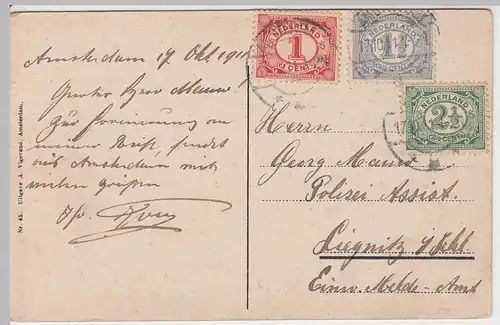 Amsterdam 17 Okt. 1918
Geehrter Herr
Zur Erinnerung an
meiner sendet
aus Amsterdam mit
vielen Grüßen
Nr. 45. Uitgave A. Vigeveno, Amsterdam.
NEDERLAND
1
CENT
NEDERLAND
1½
CENT
NEDERLAND
2½
CENT
17
Herrn
Georg
Polizei Assist.
Liegnitz i/Schl.
Einw. Melde-Amt